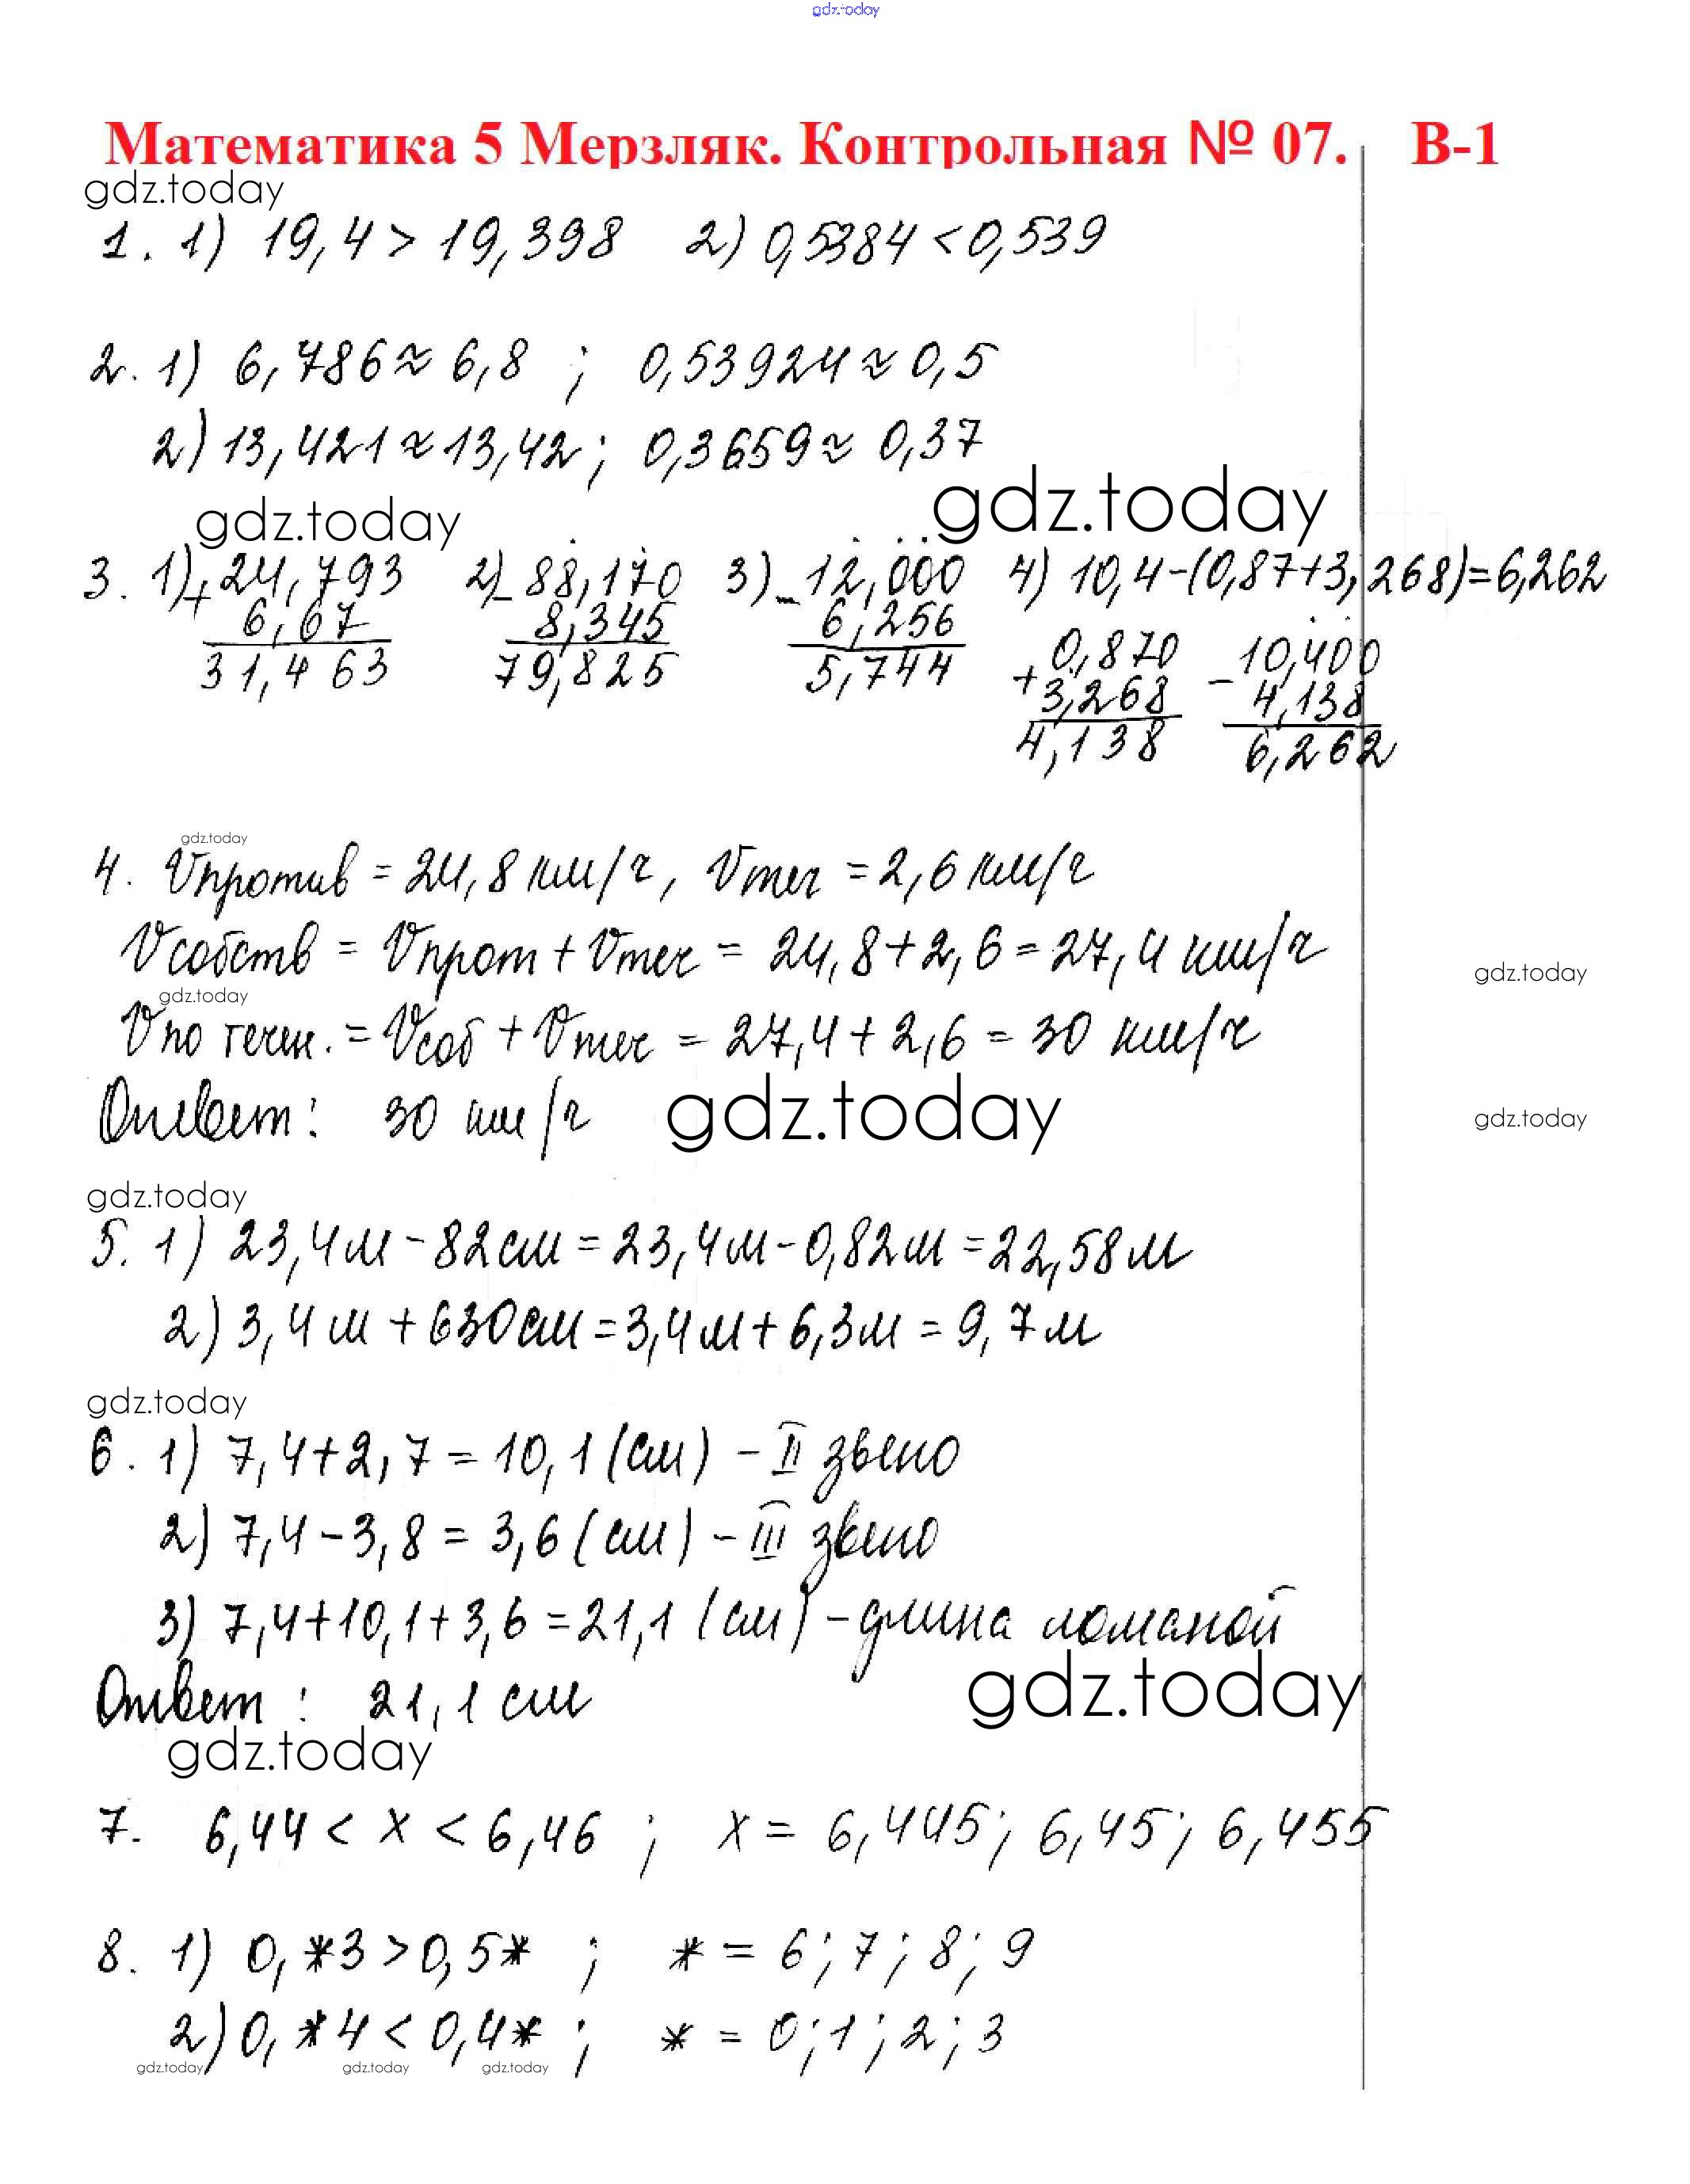 gdz.today
Математика 5 Мерзляк. Контрольная № 07. В-1
gdz.today
1. 1) 19,4 > 19,398 2) 0,5384 < 0,539
2. 1) 6,786 ≈ 6,8 ; 0,53924 ≈ 0,5
2) 13,421 ≈ 13,42 ; 0,3659 ≈ 0,37
gdz.today gdz.today
3. 1) + 24,793 2) - 88,170 3) - 12,000 4) 10,4-(0,87+3,268)=6,262
6,67 8,345 6,256 + 0,870 - 10,400
31,463 79,825 5,744 3,268 4,138
4,138 6,262
gdz.today
4. Vпротив = 24,8 км/ч, Vтеч = 2,6 км/ч
Vсобств = Vпрот + Vтеч = 24,8+2,6=27,4 км/ч
gdz.today
gdz.today
Vпо течен. = Vсоб + Vтеч = 27,4 + 2,6 = 30 км/ч
Ответ: 30 км/ч gdz.today
gdz.today
gdz.today
5. 1) 23,4м - 82см = 23,4м - 0,82м = 22,58м
2) 3,4м + 630см = 3,4м + 6,3м = 9,7м
gdz.today
6. 1) 7,4+2,7 = 10,1 (см) - II звено
2) 7,4 - 3,8 = 3,6 (см) - III звено
3) 7,4+10,1+3,6 = 21,1 (см) - длина ломаной
Ответ : 21,1 см gdz.today
gdz.today
7. 6,44 < x < 6,46 ; x = 6,445; 6,45; 6,455
8. 1) 0,*3 > 0,5* ; * = 6; 7; 8; 9
2) 0,*4 < 0,4* ; * = 0; 1; 2; 3
gdz.today gdz.today gdz.today